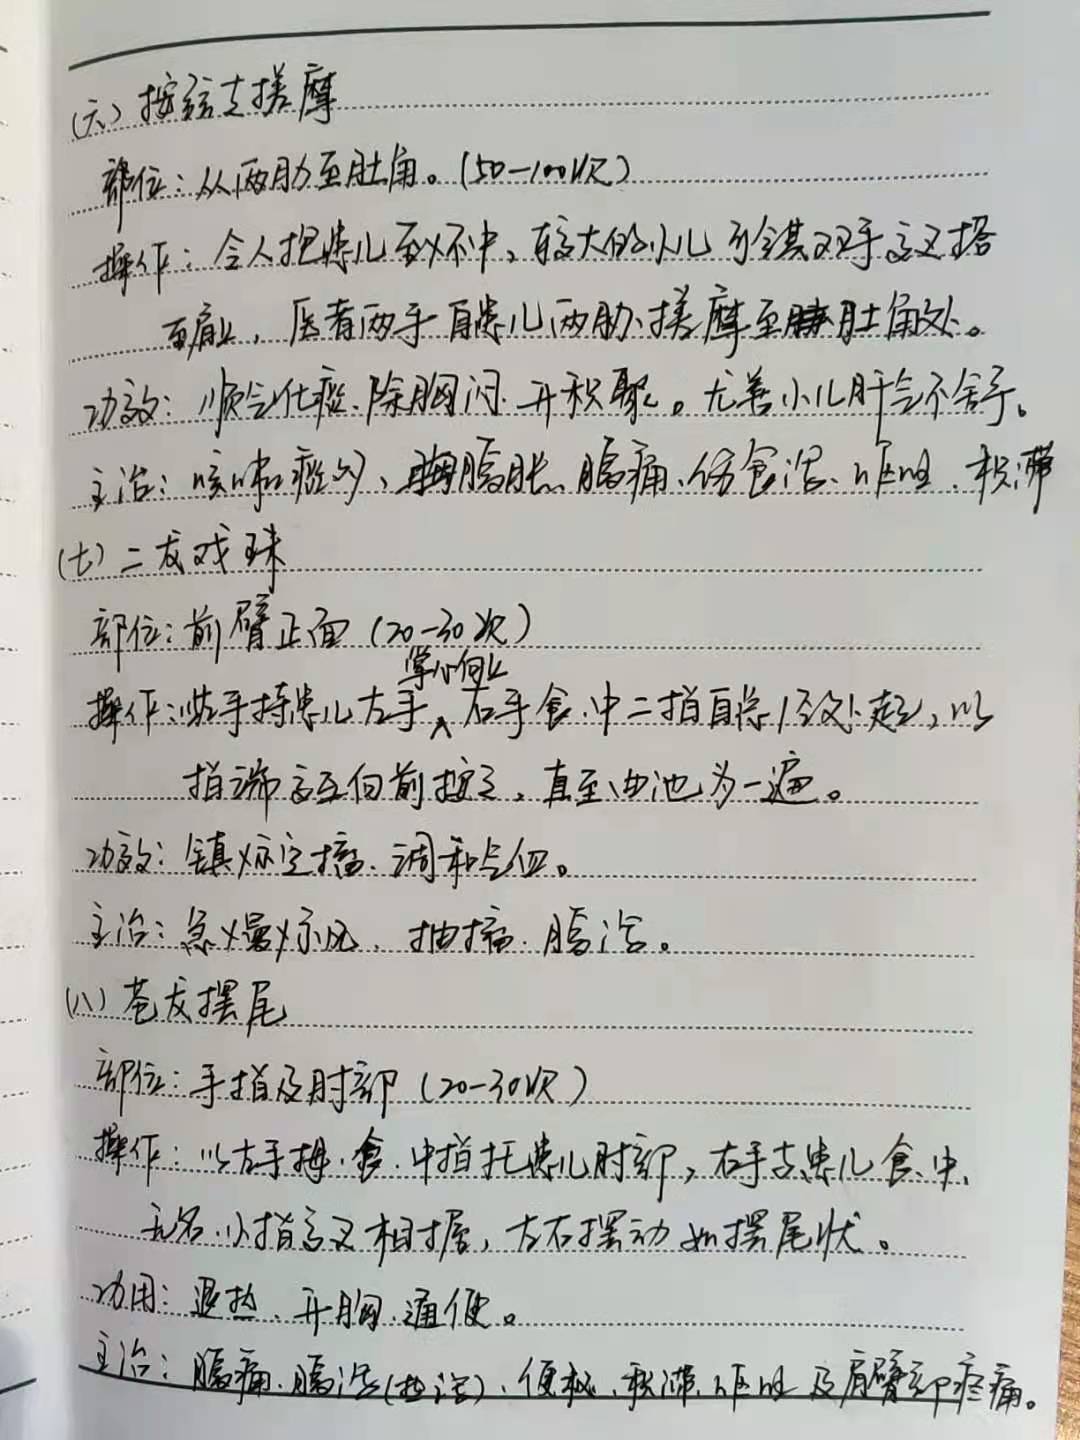 (六)按弦走搓摩
部位:从两肋至肚角。(50-100次)
操作:令人抱患儿至怀中,较大的小儿可令其双手交叉搭
至肩上,医者两手自患儿两肋搓摩至肚角处。
功效:顺气化痰、除胸闷、开积聚。尤善小儿肝气不舒。
主治:咳嗽痰多、胸腹胀、腹痛、伤食泻、呕吐、积滞
(七)二龙戏珠
部位:前臂正面(20-30次)
掌心向上
操作:以左手持患儿左手,右手食、中二指自总经处起,以
指端交互向前按之,直至曲池为一遍。
功效:镇惊定搐、调和气血。
主治:急慢惊风、抽搐、腹泻。
(八)苍龙摆尾
部位:手指及肘部(20-30次)
操作:以左手拇、食、中指托患儿肘部,右手与患儿食、中、
无名、小指交叉相握,左右摆动如摆尾状。
功用:退热、开胸、通便。
主治:腹痛、腹泻(热泻)、便秘、积滞、呕吐及肩臂部疼痛。